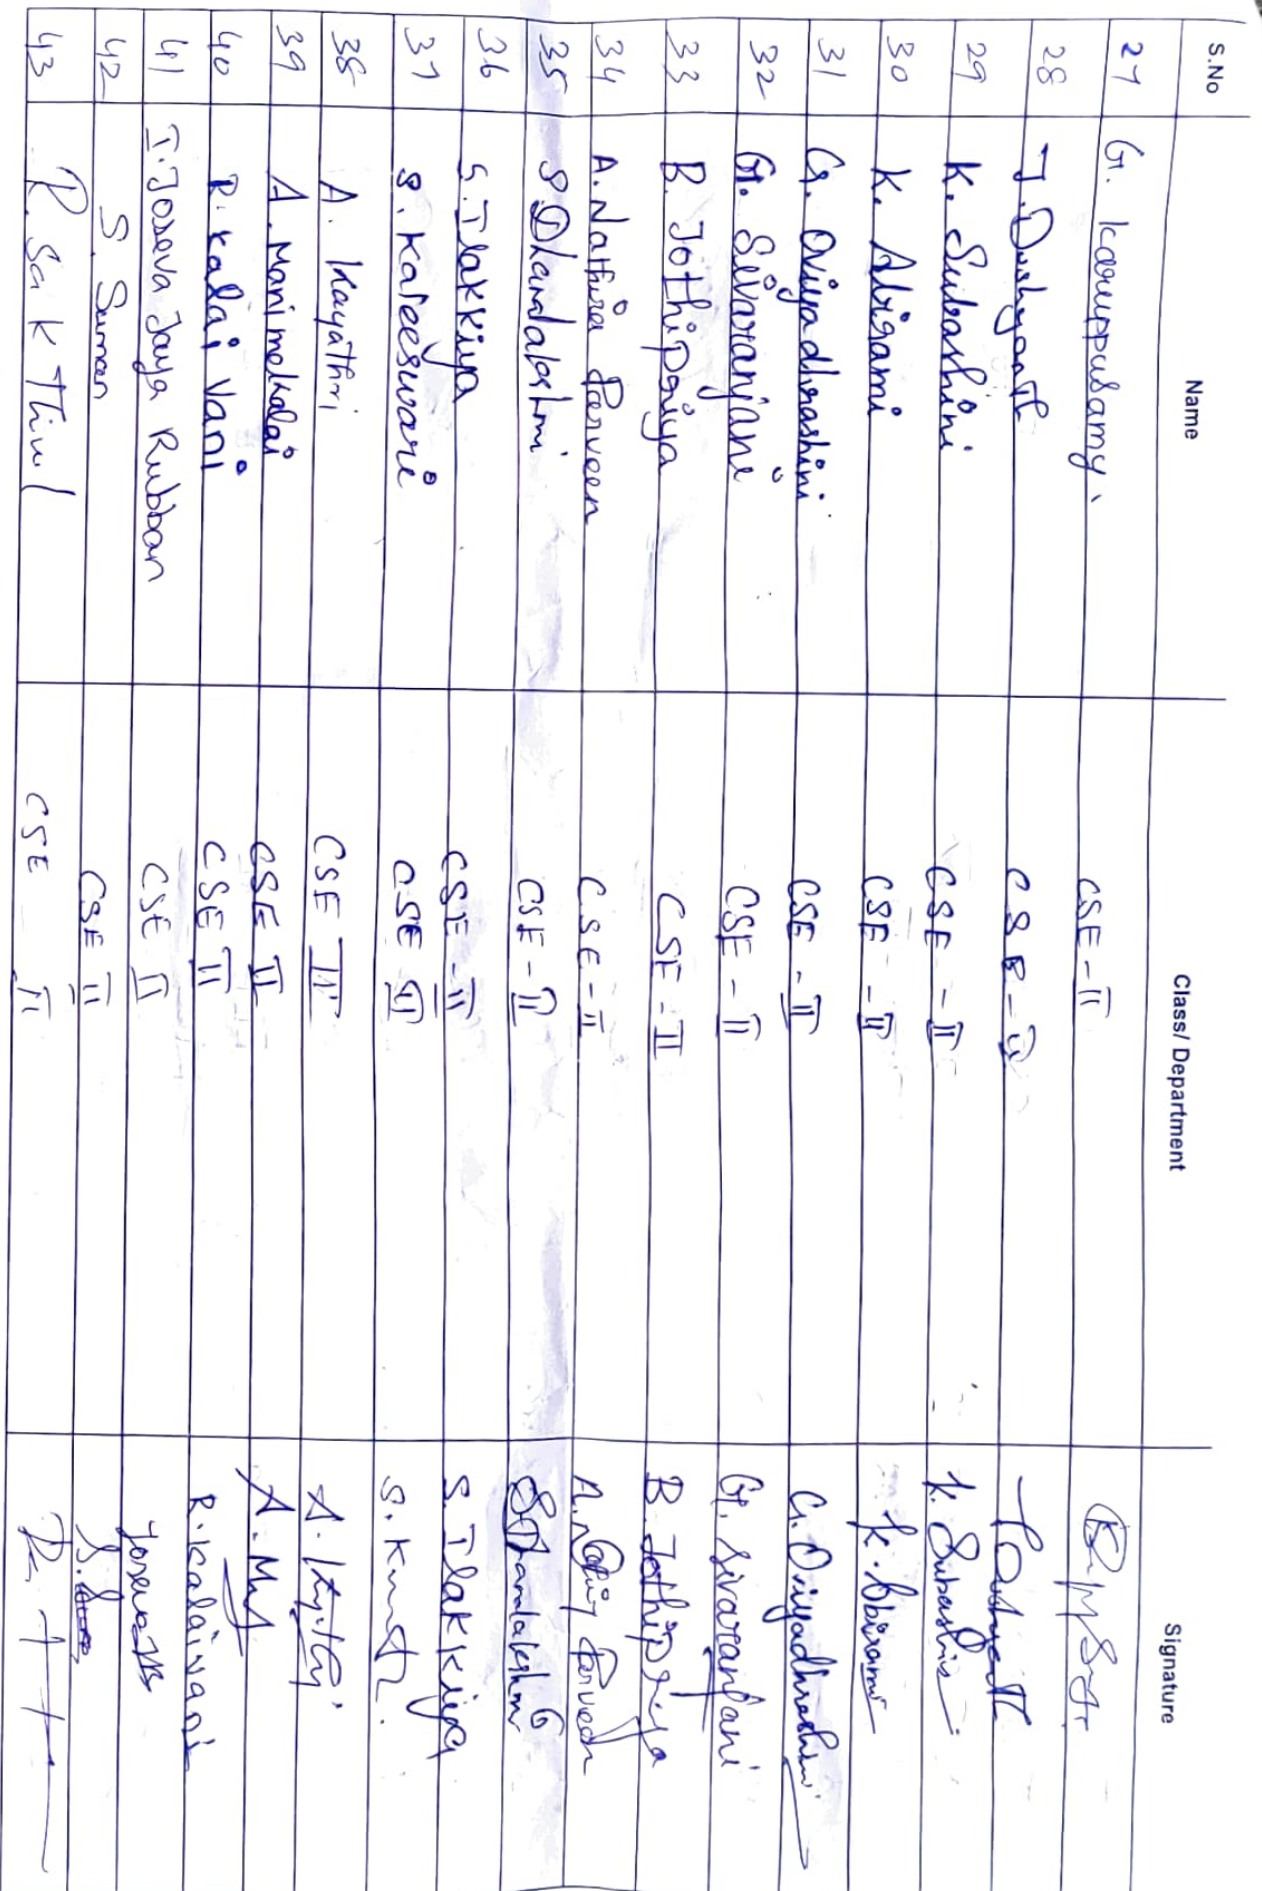 S.No Name Class/ Department Signature
27 G. Karuppusamy. CSE-II
28 J. Dushyanth CSE-II
29 K. Subashini CSE-II K. Subashini
30 K. Abirami CSE-II K. Abirami
31 G. Oviyadharshini CSE-II G. Oviyadharshini
32 G. Sivaranjani CSE-II G. Sivaranjani
33 B. Jothipriya CSE-II B. Jothipriya
34 A. Nathira Parveen CSE-II A. Parveen
35 S Dhanalakshmi CSE-II S Dhanalakshmi
36 S. Ilakkiya CSE-II S. Ilakkiya
37 S. Kaleeswari CSE II
38 A. Kayathri CSE II
39 A. Manimekalai CSE II
40 R. Kalai Vani CSE II R. Kalaivani
41 I. Joseva Jaya Rubban CSE II
42 S. Suman CSE II
43 R. Sakthivel CSE II